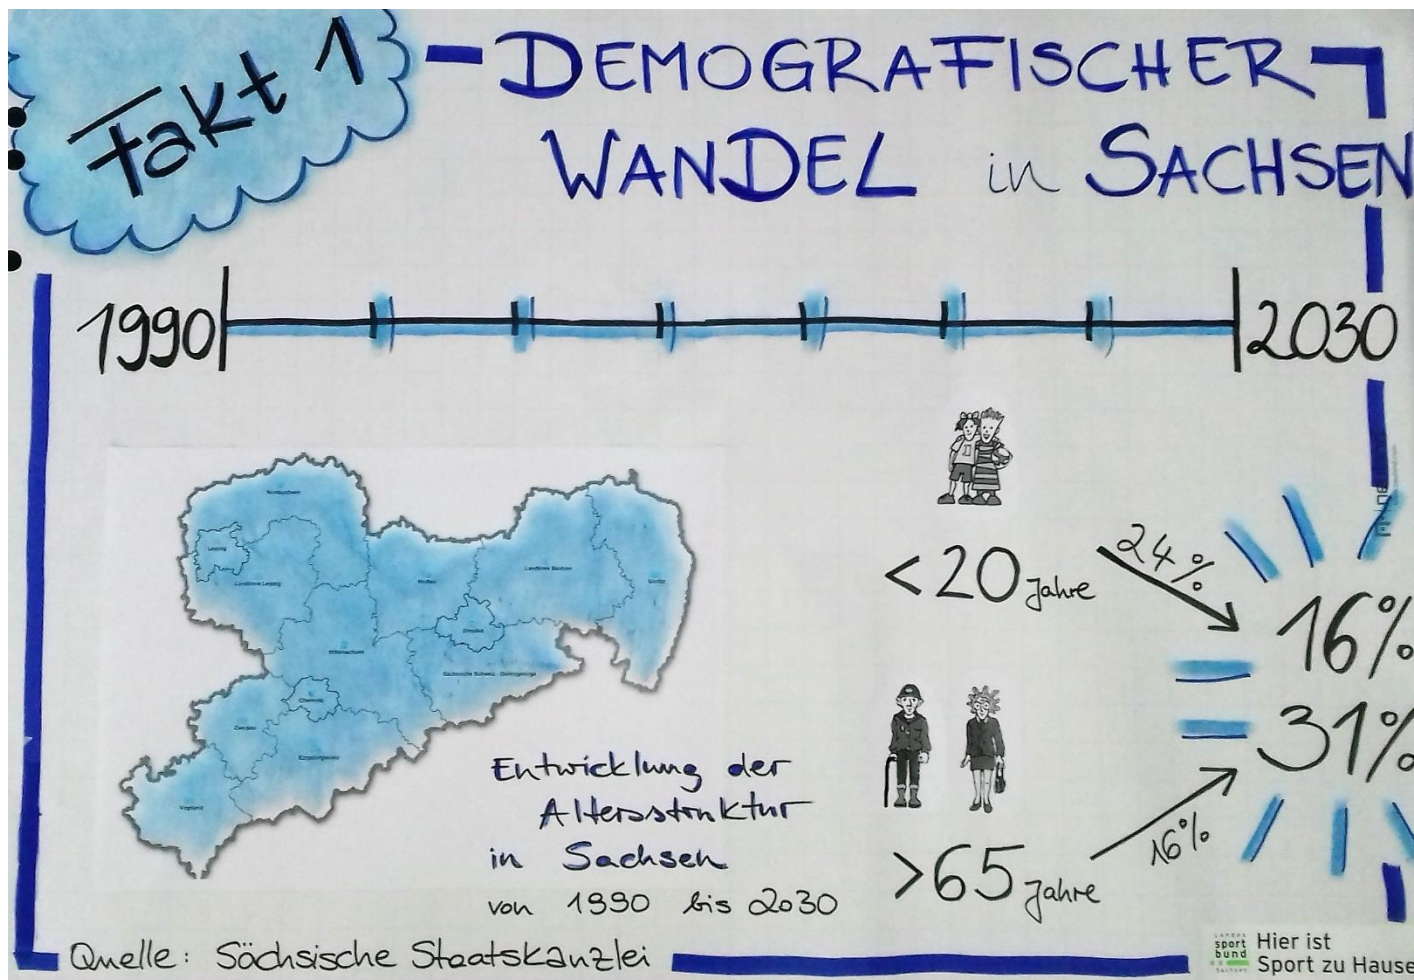 Fakt 1
DEMOGRAFISCHER
WANDEL in SACHSEN
1990
2030
Nordsachsen
Leipzig
Landkreis Leipzig
Meißen
Landkreis Bautzen
Görlitz
Dresden
Mittelsachsen
Sächsische Schweiz - Osterzgebirge
Chemnitz
Zwickau
Erzgebirgskreis
Vogtland
<20 Jahre
24%
16%
31%
16%
>65 Jahre
Entwicklung der
Altersstruktur
in Sachsen
von 1990 bis 2030
Quelle: Sächsische Staatskanzlei
landes
sport
bund
sachsen
Hier ist
Sport zu Hause